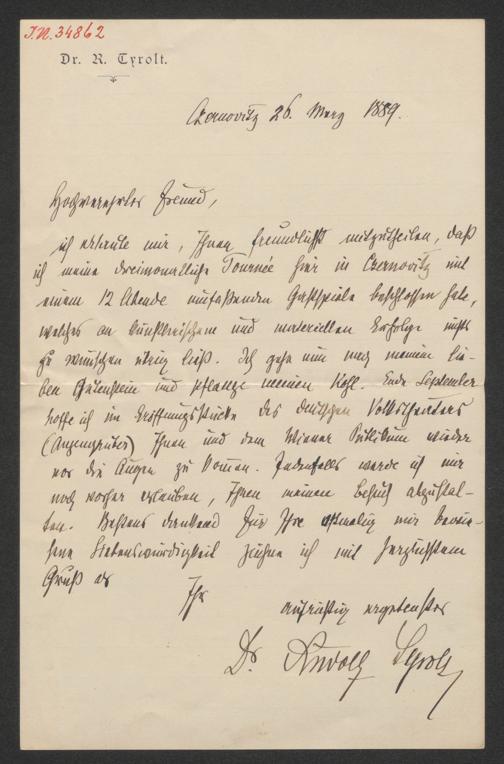 I.N. 34862
Dr. R. Tyrolt.
Czernovitz 26. März 1889.
Hochverehrter Freund,
ich erlaube mir, Ihnen freundlichst mitzutheilen, daß
ich meine dreimonatliche Tournée hier in Czernovitz mit
einem 12 Abende umfaßenden Gastspiele beschlossen habe,
welches an künstlerischem und materiellen Erfolge nichts
zu wünschen übrig ließ. Ich gehe nun nach meinem lie-
ben Gutenstein und pflanze meinen Kohl. Ende September
hoffe ich im Eröffnungsstücke des deutschen Volkstheaters
(Anzengruber) Ihnen und dem Wiener Publikum wieder
vor die Augen zu kommen. Jedenfalls werde ich mir
noch vorher erlauben, Ihnen meinen Besuch abzustat-
ten. Bestens dankend für Ihre oftmalig mir bewie-
sene Liebenswürdigkeit zeichne ich mit herzlichstem
Gruß als
Ihr
aufrichtig ergebenster
Dr. Rudolf Tyrolt